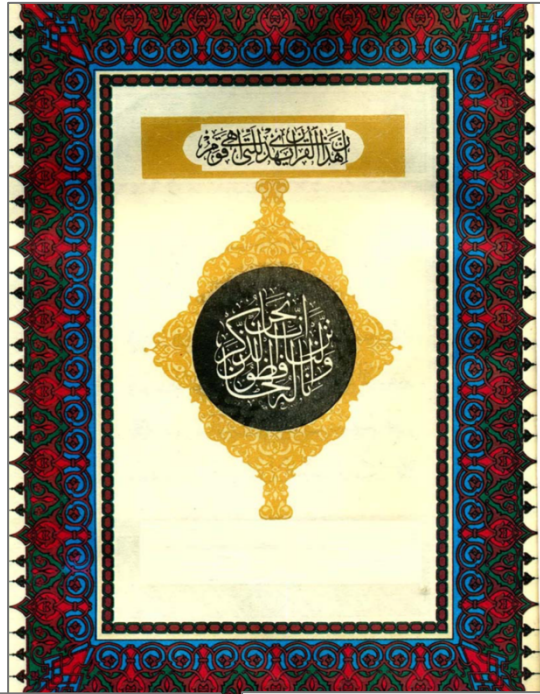 إن هذا القرآن يهدي للتي هي أقوم
إنا نحن نزلنا الذكر وإنا له لحافظون